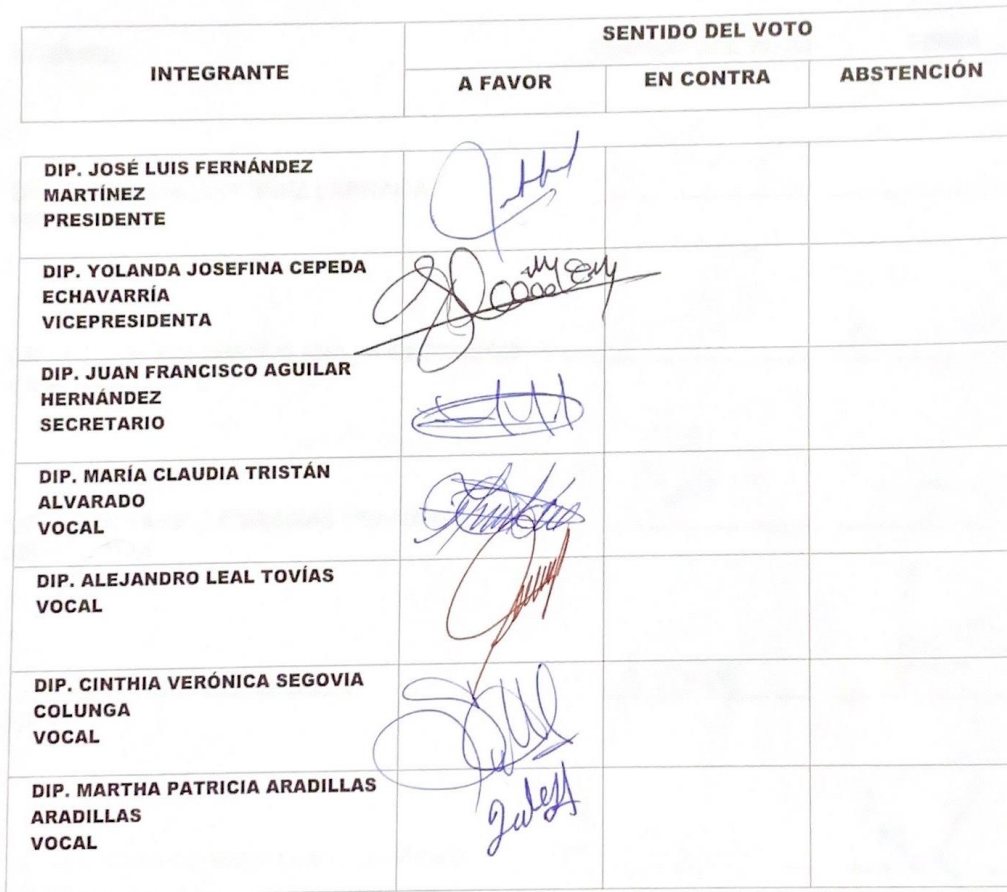 INTEGRANTE
SENTIDO DEL VOTO
A FAVOR
EN CONTRA
ABSTENCIÓN
DIP. JOSÉ LUIS FERNÁNDEZ
MARTÍNEZ
PRESIDENTE
DIP. YOLANDA JOSEFINA CEPEDA
ECHAVARRÍA
VICEPRESIDENTA
DIP. JUAN FRANCISCO AGUILAR
HERNÁNDEZ
SECRETARIO
DIP. MARÍA CLAUDIA TRISTÁN
ALVARADO
VOCAL
DIP. ALEJANDRO LEAL TOVÍAS
VOCAL
DIP. CINTHIA VERÓNICA SEGOVIA
COLUNGA
VOCAL
DIP. MARTHA PATRICIA ARADILLAS
ARADILLAS
VOCAL